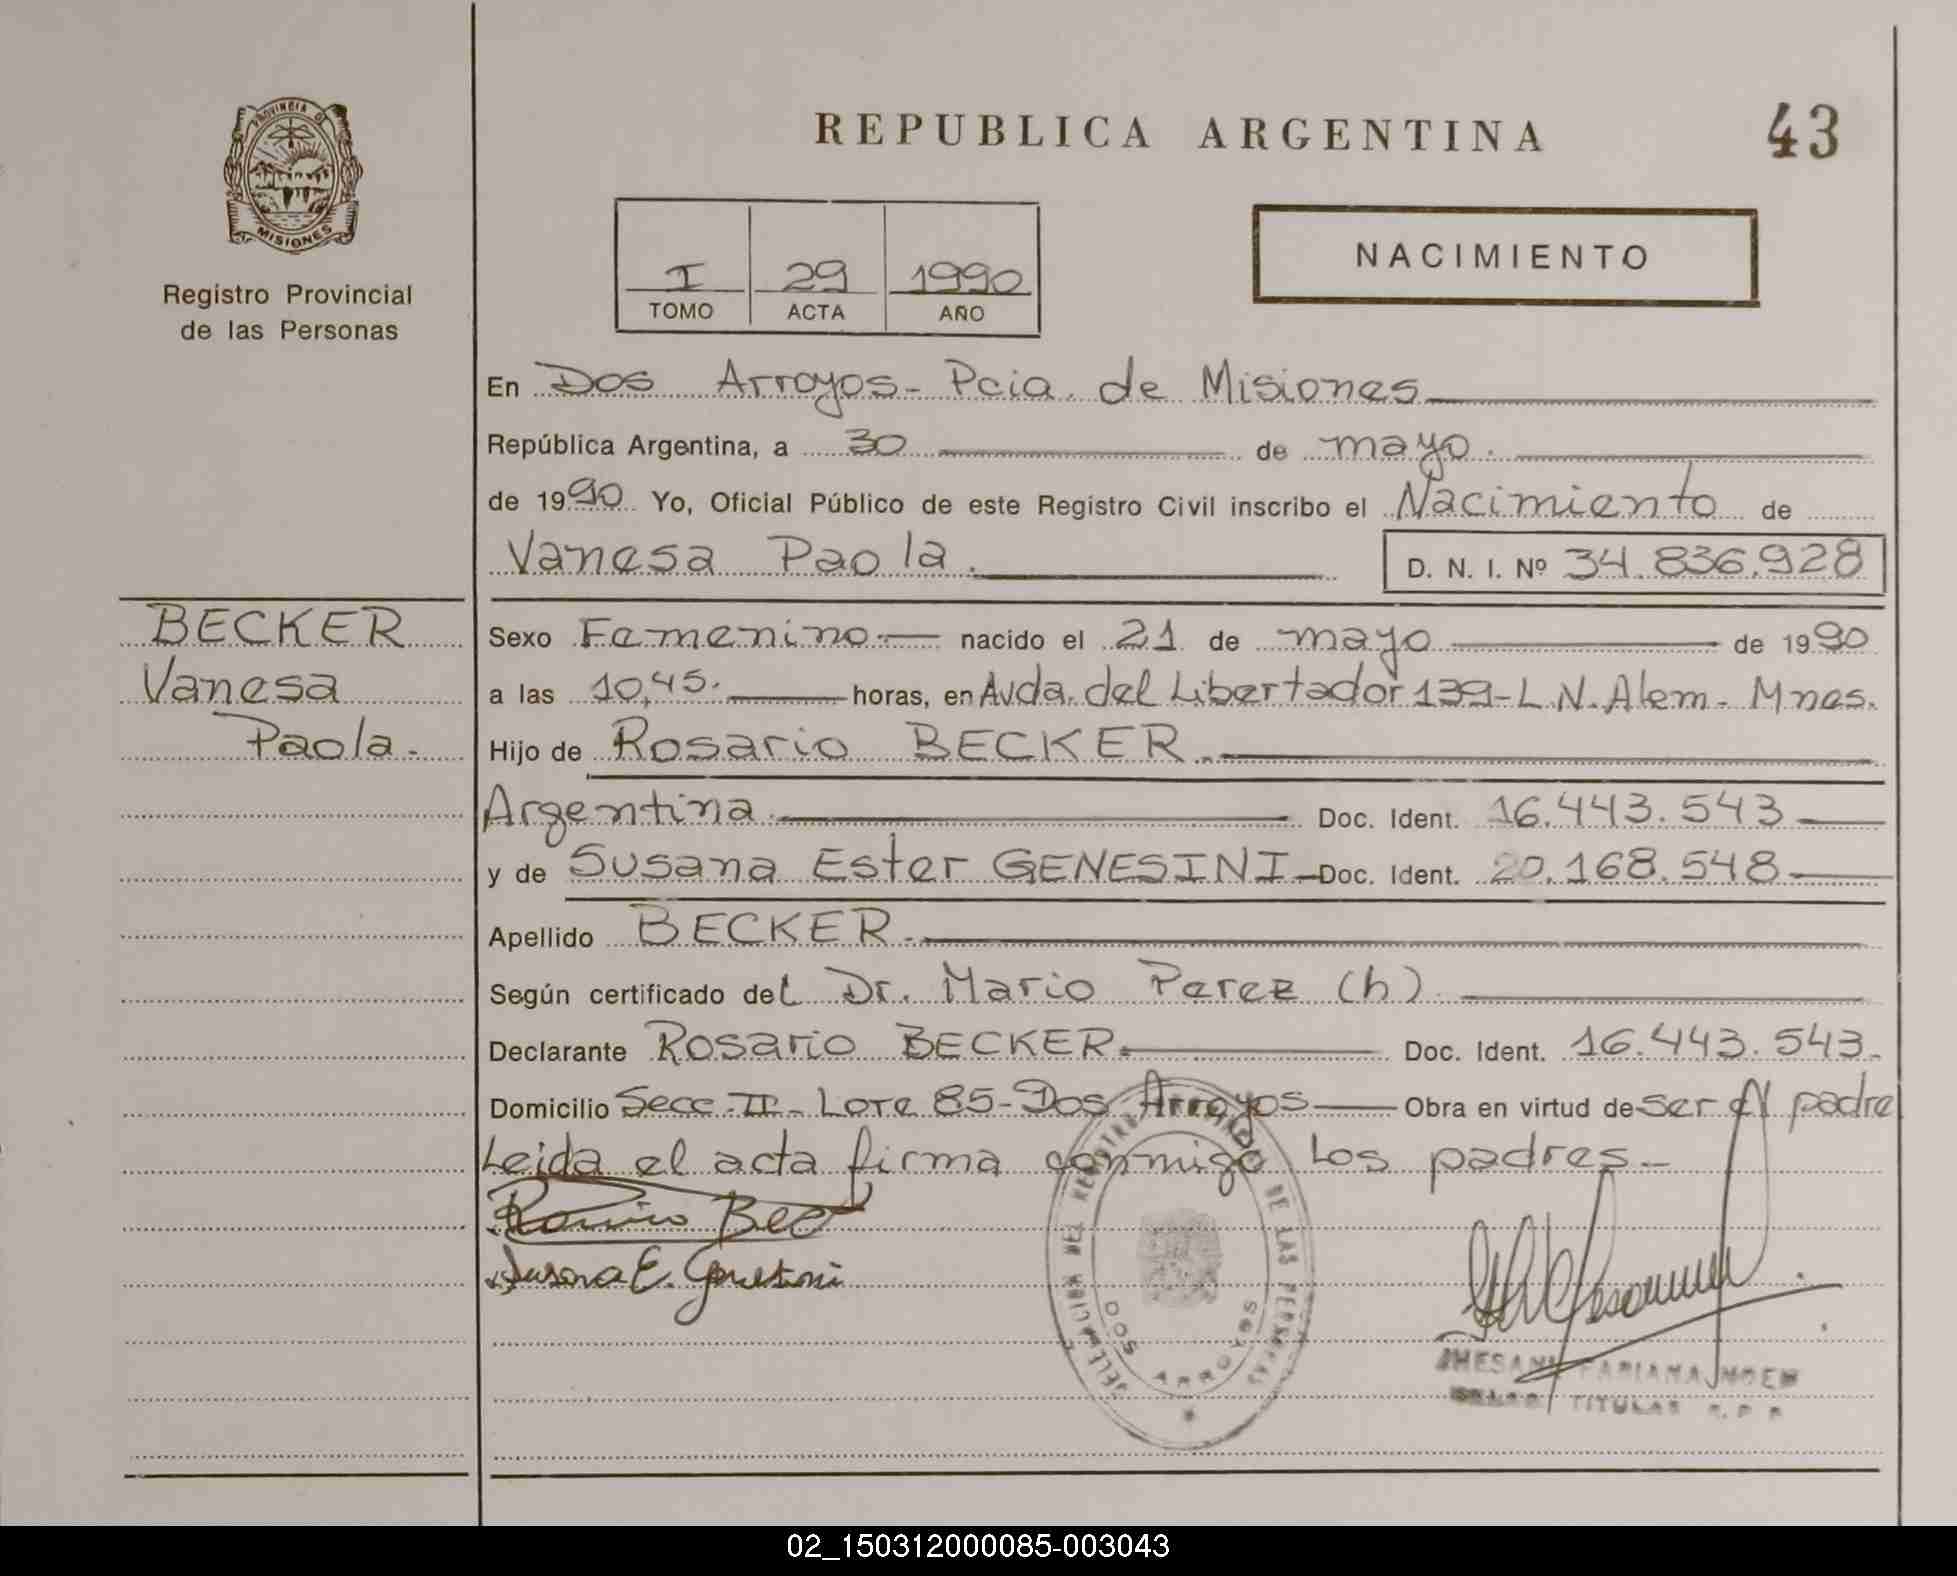 PROVINCIA D
MISIONES
Registro Provincial
de las Personas
REPUBLICA ARGENTINA
43
I 29 1990
TOMO ACTA AÑO
NACIMIENTO
En Dos Arroyos - Pcia. de Misiones
República Argentina, a 30 de mayo.
de 1990 Yo, Oficial Público de este Registro Civil inscribo el Nacimiento de
Vanesa Paola. D. N. I. Nº 34.836.928
BECKER
Vanesa
Paola.-
Sexo Femenino.- nacido el 21 de mayo de 1990
a las 10,45. horas, en Avda. del Libertador 139 - L.N. Alem - Mnes.
Hijo de Rosario BECKER.
Argentina Doc. Ident. 16.443.543
y de Susana Ester GENESINI Doc. Ident. 20.168.548
Apellido BECKER.
Según certificado del Dr. Mario Perez (h)
Declarante Rosario BECKER. Doc. Ident. 16.443.543.
Domicilio Secc. II - Lote 85 - Dos Arroyos Obra en virtud de ser el padre
Leida el acta firma conmigo Los padres.-
Susana E.
DE LAS PERSONAS
DOS ARROYOS
FABIANA
TITULAR
02_150312000085-003043